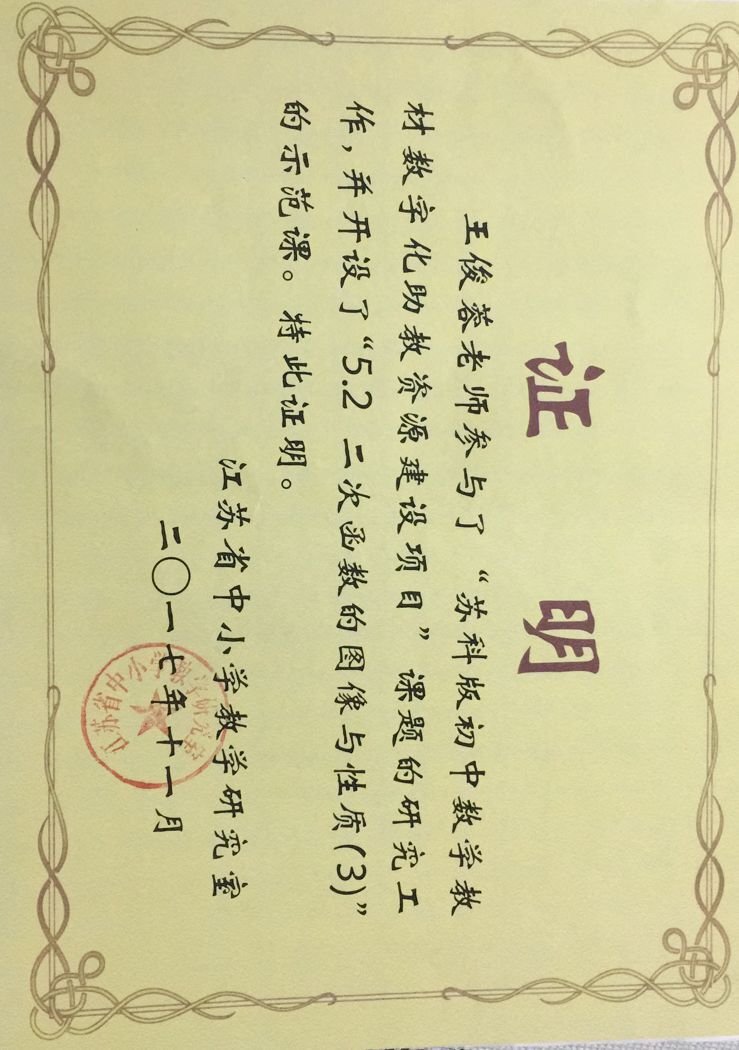 证 明
王俊蓉老师参与了“苏科版初中数学教
材数字化助教资源建设项目”课题的研究工
作，并开设了“5.2 二次函数的图像与性质(3)”
的示范课。特此证明。
江苏省中小学教学研究室
二〇一七年十一月
江苏省中小学教学研究室